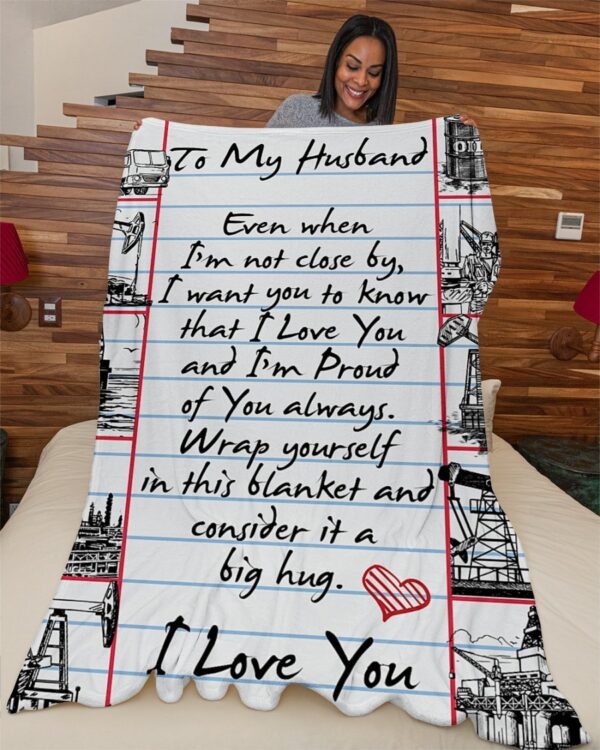 To My Husband
Even when
I'm not close by,
I want you to know
that I Love You
and I'm Proud
of You always.
Wrap yourself
in this blanket and
consider it a
big hug.
I Love You